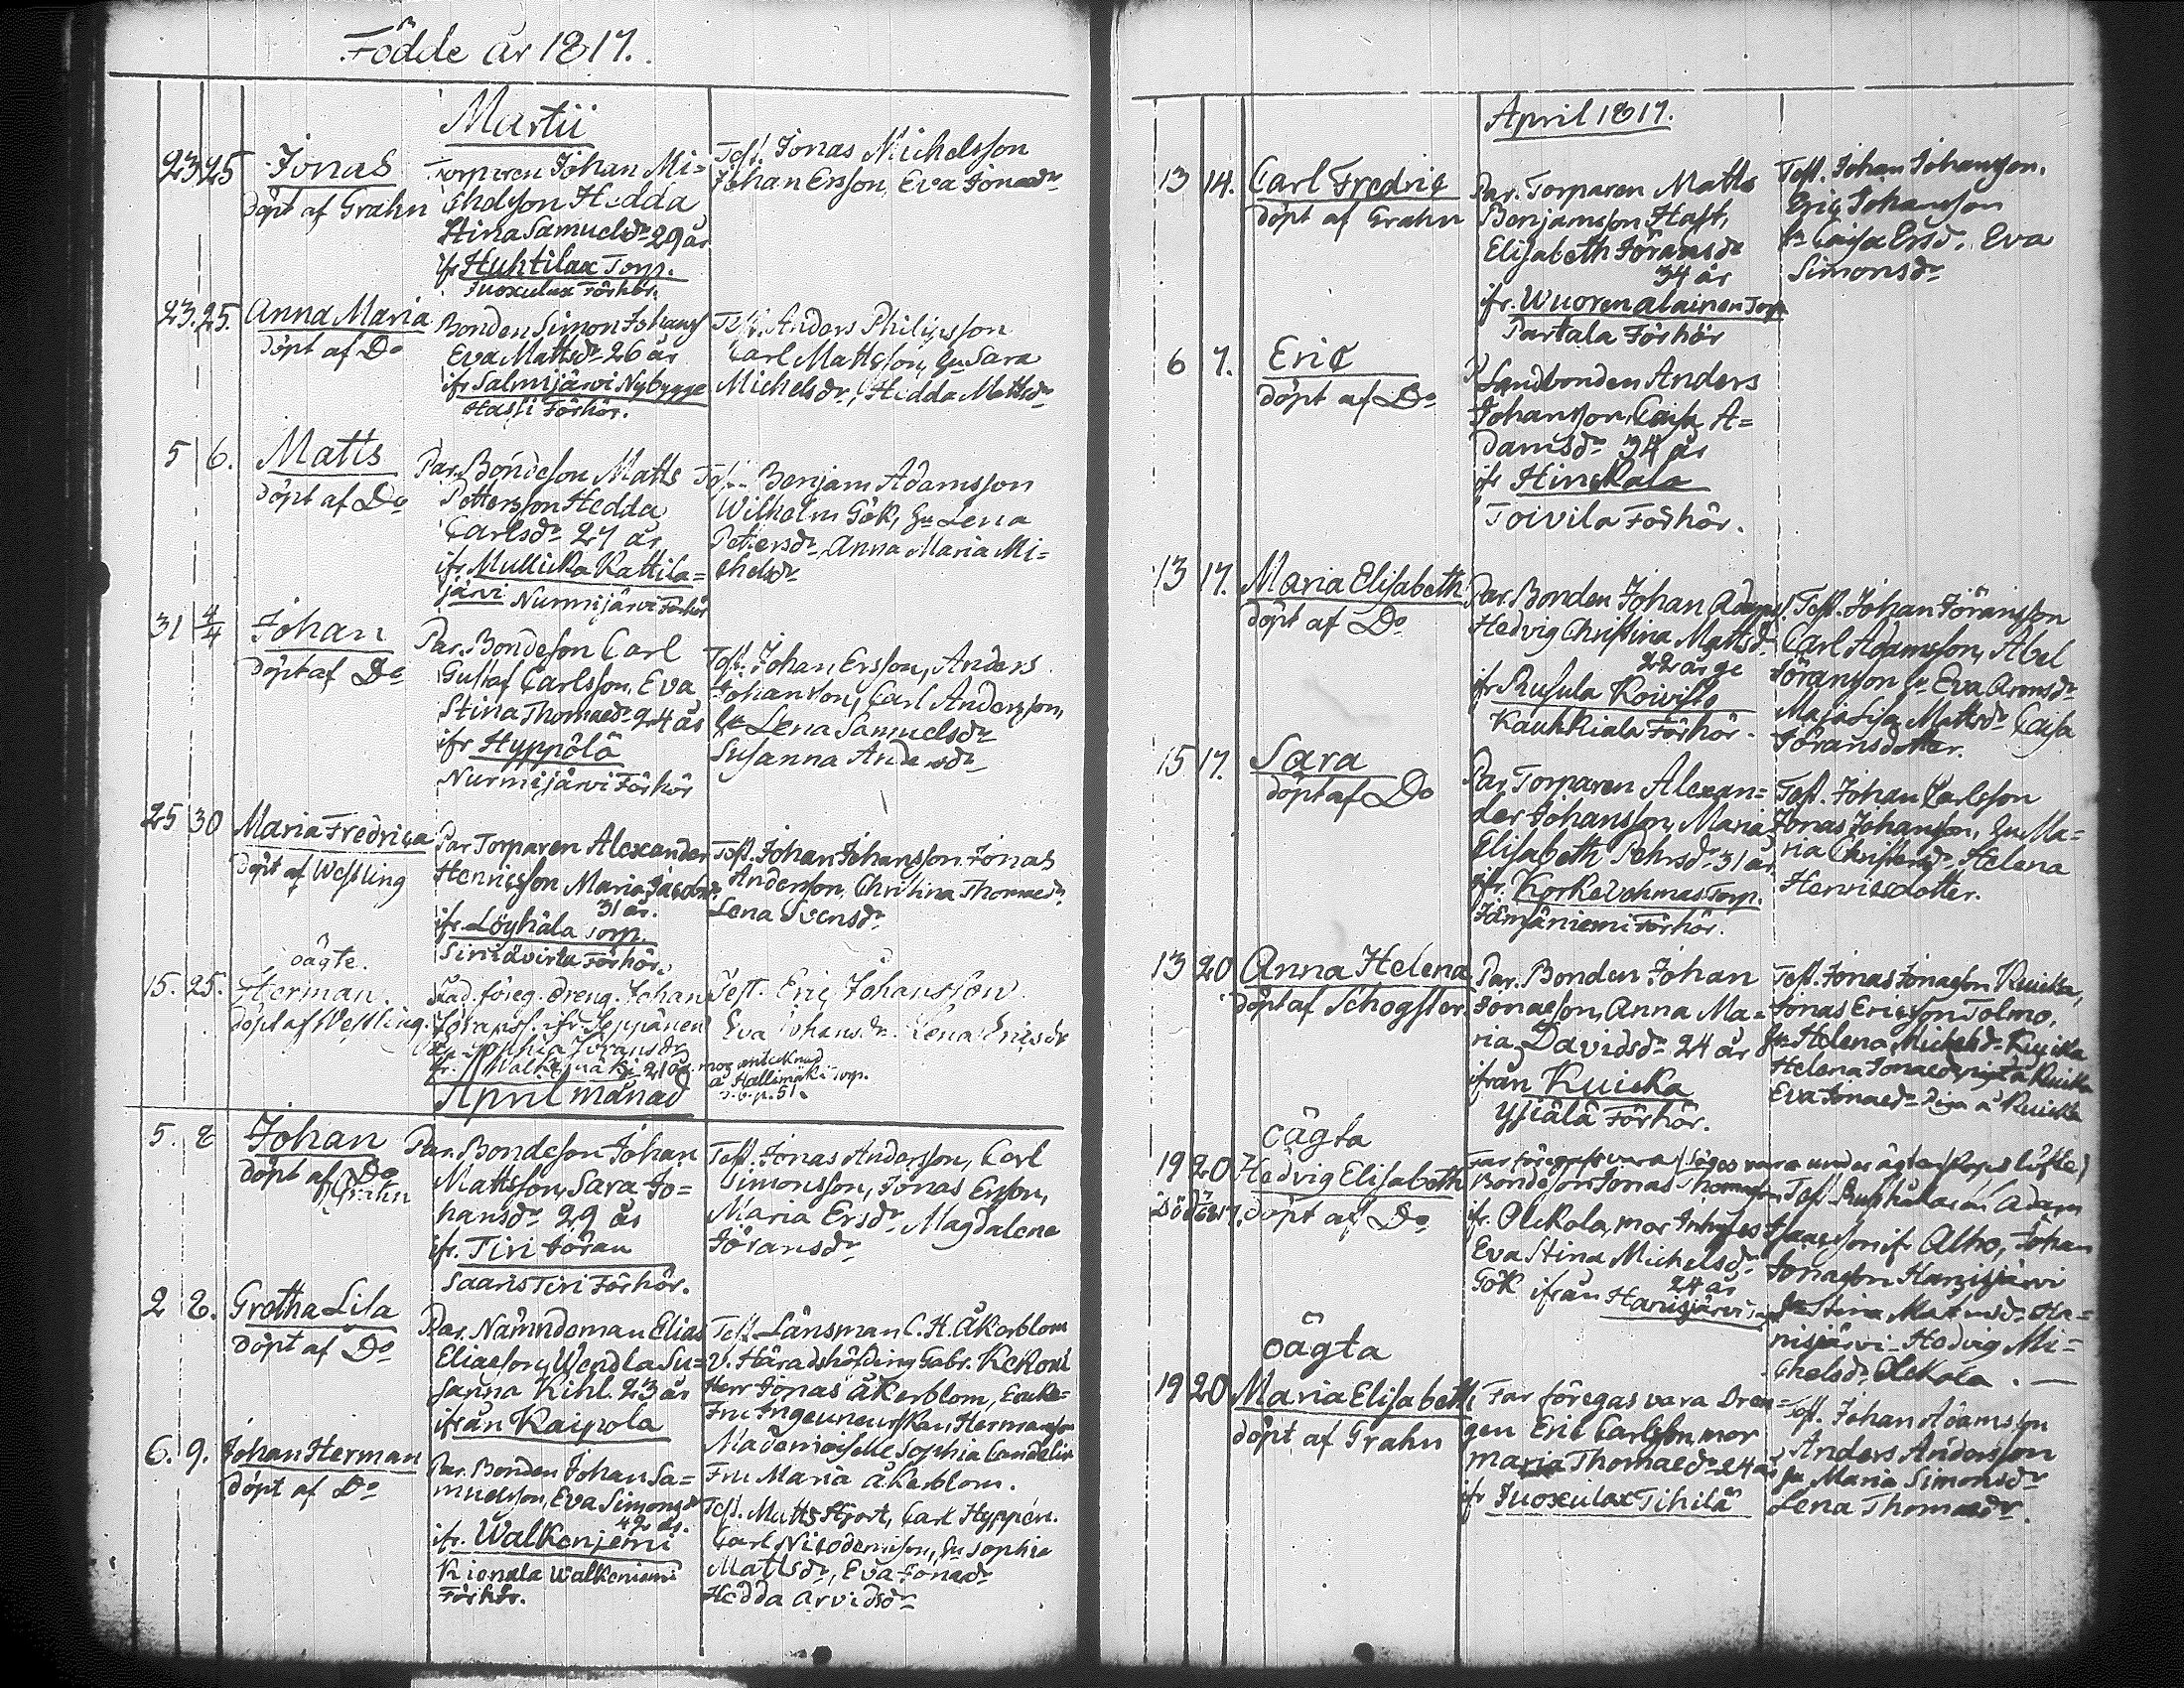 Födde år 1817.
Martii
23 25 Jonas
döpt af Grahn
Torparen Johan Mi=
chelsson Hedda
Stina Samuelsdr 29 år
ifr Huhtilax Torp.
Juoxulax Förhör.
Test. Jonas Michelsson
Johan Ersson, Eva Jonaedr
23. 25. Anna Maria
döpt af Do
Bonden Simon Johanss
Eva Mattsdr 26 år
ifr Salmijärvi Nybygge
Hassi Förhör.
Test. Anders Philipsson
Carl Mattsson, Hu Sara
Michelsdr, Hedda Mattsdr
5 6. Matts
döpt af Do
Par. Bondeson Matts
Pettersson Hedda
Carlsdr 27 år
ifr Mullicka Kattila=
järvi Nurmijärvi Förhör
Benjam Adamsson
Wilhelm Gök, Hu Lena
Petersdr, Anna Maria Mi=
chelsdr
31 4/4 Johan
döpt af Do
Par. Bondeson Carl
Gustaf Carlsson, Eva
Stina Thomaedr 24 år
ifr Hyppölä
Nurmijärvi Förhör
Test. Johan Ersson, Anders
Johansson, Carl Andersson,
Hu Lena Samuelsdr
Susanna Andersdr
25 30 Maria Fredrica
döpt af Wessling
Par Torparen Alexander
Henricsson Maria Jacobsdr
31 år.
ifr. Löyhälä Torp.
Sirkkävirta Förhör.
Test. Johan Johansson Jonas
Andersson, Christina Thomaedr
Lena Svensdr
oägte.
15. 25. Herman.
döpt af Wessling.
föreg. dreng. Johan
Göranss. ifr Seppänen
Sophia Göransdr
Test. Eric Johansson
Eva Johansdr. Lena Ericsdr
mor antecknad
å Hallimäki Torp.
p. 51.
April månad
5. 8 Johan
döpt af Do
Grahn
Par. Bondeson Johan
Mattsson, Sara Jo=
hansdr 29 år
ifr. Tiri Jöran
Saaris Tiri Förhör.
Test. Jonas Andersson, Carl
Simonsson, Jonas Ersson,
Maria Ersdr Magdalena
Jöransdr
2 8. Gretha Lisa
döpt af Do
Par. Nämndeman Elias
Eliaeson, Wendla Su=
sanna Kihl. 23 år
ifrån Kaipola
Test Länsman C. H. Åkerblom
V. Häradshöfding Gabr. Kekoni
Herr Jonas Åkerblom,
Fru Ingenieurskan Hermansson
Mademoiselle Sophia Candelin
Fru Maria Åkerblom.
6. 9. Johan Herman
döpt af Do
Par. Bonden Johan Sa=
muelsson, Eva Simonsdr
42 år.
ifr. Walkeniemi
Walkeniemi
Förhör.
Test. Matts Hjort, Carl Hyppén.
Carl Nicodemison, Hu Sophia
Mattsdr, Eva Jonaedr
Hedda Arvidsdr
April 1817.
13 14. Carl Fredric
döpt af Grahn
Par. Torparen Matts
Benjamsson Hast,
Elisabeth Jöransdr
34 år
ifr. Wuorenalainen Torp
Partala Förhör
Test. Johan Johansson.
Eric Johansson
Hu Caisa Ersd. Eva
Simonsdr
6 7. Eric
döpt af Do
Landbonden Anders
Johansson, Caisa A=
damsdr 34 år
ifr Hinckala
Toivila Förhör.
13 17. Maria Elisabeth
döpt af Do
Par. Bonden Johan Adamss.
Hedvig Christina Mattsdr
22 år ge
ifr Rusula Koivisto
Kauhkiala Förhör.
Test. Johan Jöransson
Carl Adamsson, Abel
Jöransson Hu Eva Aronsdr
Maja Lisa Mattsdr Caisa
Jöransdotter.
15 17. Sara
döpt af Do
Par Torparen Alexan=
der Johansson, Maria
Elisabeth Pehrsdr 31 år
ifr. Korkevohmas Torp.
Jämsäniemi Förhör.
Test. Johan Carlsson
Jonas Johansson, Hu Ma=
ria Christersdr, Helena
Henricsdotter.
13 20 Anna Helena
döpt af Schogster.
Par. Bonden Johan
Jonaeson, Anna Ma=
ria Davidsdr 24 år
ifrån Kuicka
Ysiälä Förhör.
Test. Jonas Jonaeson Kuicka,
Jonas Ericsson Tolmo,
Hu Helena Michelsdr Kuicka
Helena Jonaedr Piga å Kuicka
Eva Jonaedr Piga å Kuicka
oägta
19 20 Hedvig Elisabeth
döpt af Do
Far föregifves vara (säges vara under ägtenskaps löfte)
Bondeson Jonas Thomasson
ifr. Olckola, mor Inhyses
Eva Stina Michelsdr
Gök ifrån Hanisjärvi
24 år
Test. Adam
Isaacsson ifr Alho, Johan
Jonaeson Hanisjärvi
Hu Stina Ha=
nisjärvi Hedvig Mi=
chelsdr Olckola. —
oägta
19 20 Maria Elisabeth
döpt af Grahn
Far föregas vara Dren=
gen Eric Carlsson, mor
Maria Thomaedr 24 år
ifr Juoxulax Tihilä
Test. Johan Adamsson
Anders Andersson
Hu Maria Simonsdr
Lena Thomaedr.